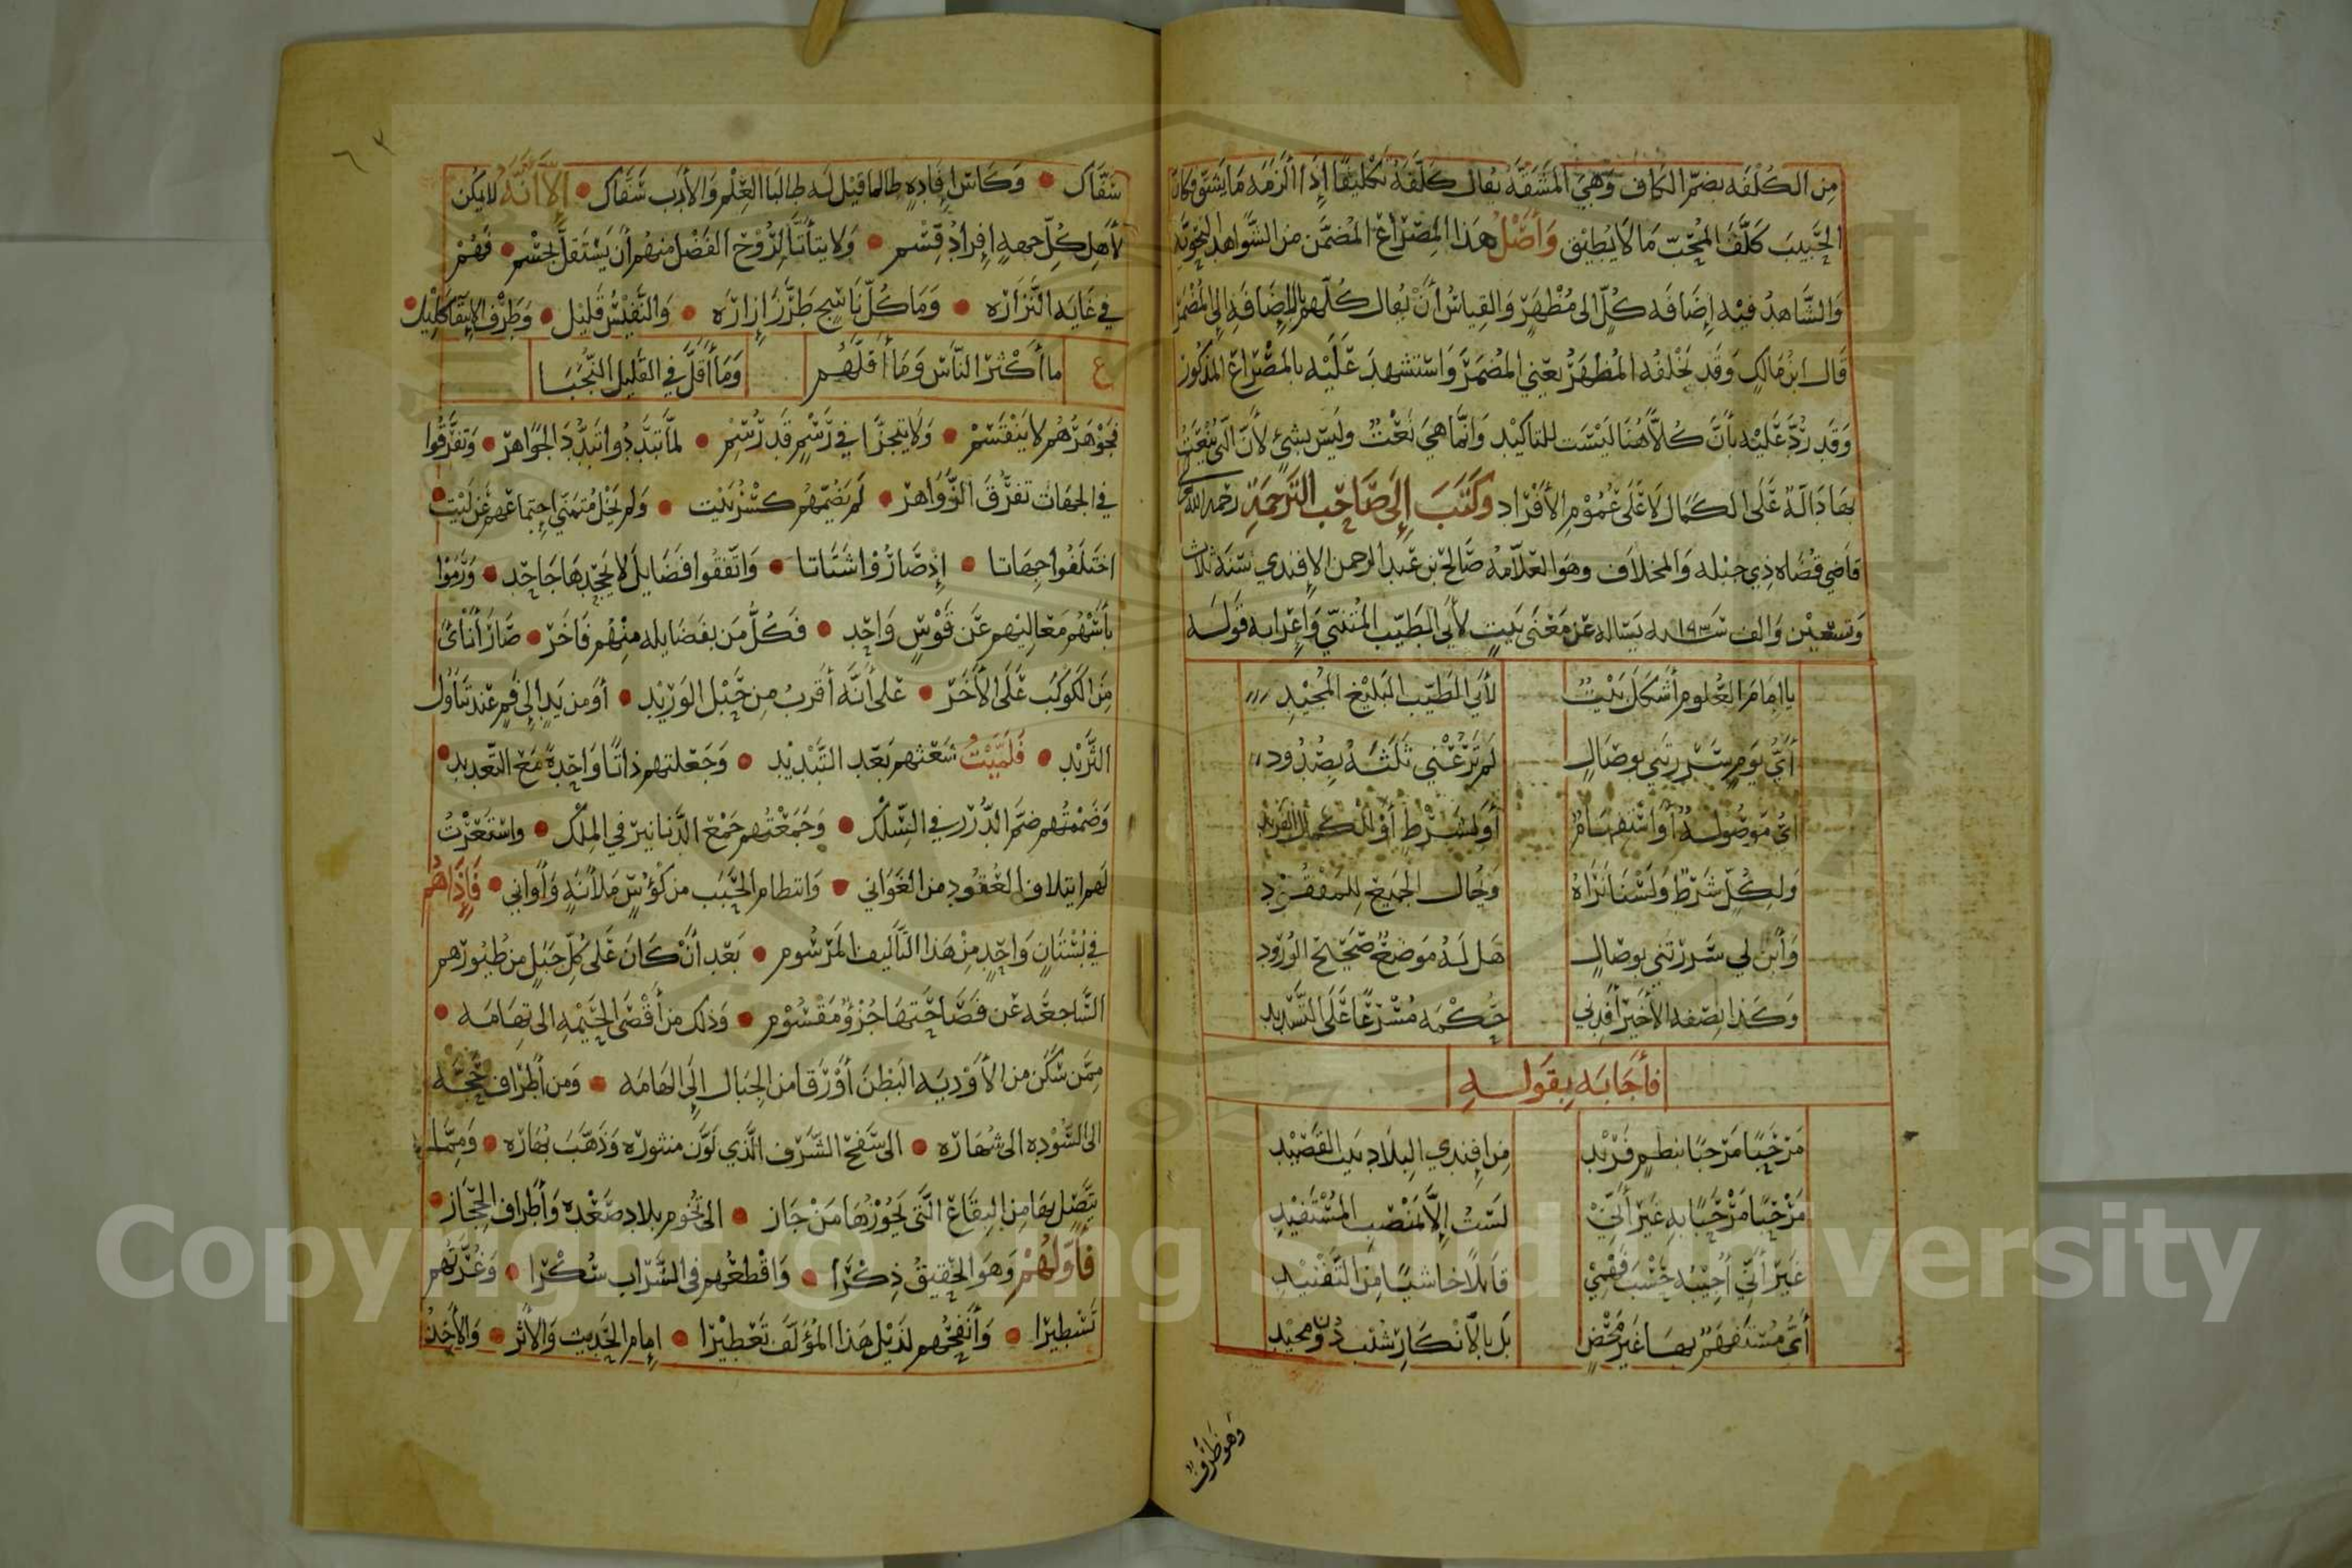 مِن الكُلْفَه بضمّ الكاف وَهِيَ المَشَقَّه يُقال كَلَّفَهُ تَكْلِيفًا إِذَا أَلزَمَه مَا يَشُقّ فكان
الحَبِيبَ كَلَّفَ المُحِبّ مَا لَا يُطِيْق وَأَصْلُ هَذا المِصْرَاعْ المُضَمَّن مِن الشّوَاهِدِ النحويّه
وَالشَّاهِدُ فيْه إِضَافَه كُلّ الى مُظْهَرٍ وَالقِيَاسُ أَنْ يُقال كُلّهم بالإِضَافَه إِلى المُضْمَر
قَالَ ابنُ مَالكٍ وَقَد يَخْلفُه المُظهَرُ يعني المُضمَرَ وَاسْتشهدَ عَلَيْه بالمصْرَاعْ المذكور
وَقَد رُدَّ عَلَيْه بأَنَّ كُلّاً هُنَا لَيْسَت للتاكيْد وَإِنَّما هيَ نَعْتٌ وَليسَ بشيْءٍ لأَنّ الَّتي يُنْعَتُ
بهَا دَالّةٌ عَلَى الكمَال لا عَلَى عُمُوْمِ الأَفْرَاد وَكَتَبَ إِلَى صَاحِب التَّرجَمَة رَحمه اللّه
قاضِي قُضَاه ذِي جبْله وَالمخلاف وهوَ العَلّامهُ صَالح بن عَبد الرحمن الإِفندي سَنَة ثلاث
وَتسعِيْن وَالف سنة ١٠٩٣ يَسْالهُ عن مَعْنَى بَيتٍ لأبي الطيّب المُتنبّي وَإِعْرَابه قَولَه
يا إِمَامَ العُلومِ أَشْكَلَ بَيْتٌ لأَبي الطيّب البَليْغ المُجيْدِ
أَيُّ يَومٍ سَرَرْتَني بوِصَالٍ لَم تَرُعْني ثلَثَةً بِصُدُودِ
أيُّ مَوصُولَةٌ أَو اسْتفهَامٌ أَو لشَرْطٍ أَو الكمَال الفَرِيْدِ
وَلِكُلٍّ شَرْطٌ وَلَسْنَا نَرَاهُ وَحَال الجَميع لِلمَفْقُوْدِ
وَأَبْن لي سَرَرْتَني بوِصَالٍ هَل لَهُ مَوضعٌ صَحيْح الورُودِ
وَكَذا نِصْفه الأخيْرَ أَفِدْني حُكْمه مُسْرَعًا عَلَى التَّسْدِيدِ
فأجَابَه بقَولِهِ
مَرْحَبًا مَرْحَبًا بنظمٍ فَرِيْدِ مِن افِندي البِلَادِ بَيْت القَصيْدِ
مَرْحَبًا مَرْحَبًا بهِ غَيْرَ أَنِّيْ لَسْتُ إِلّا بمَنْصِب المُسْتَفيْدِ
غَيْرَ أَنّي أُجِيْبُه حَسْبَ فَهْمِيْ قَائلًا خاشيًا مِن التَّفْنيْدِ
أَيُّ مُسْتَفهَمٌ بهَا غَيْرَ مَحْضٍ بَل بالأنْكَارِ شُبْت دُوْن محيْدِ
وَهوَ ظرفٌ
سَفّاك وَكَاس إِفادةٍ طالما قيْل لَه طالبا العِلْم وَالأَدَب سَفّاك إِلَّا أَنَّهُ لا يمكن
لأَهل كُلّ جهةٍ إِفرادُ قِسْم وَلا يتأَتّا لرُوْح الفَضْل منهُم أن يَسْتقلّ بجسْم فَهُمْ
في غَايَه النَّزَارَه وَمَا كُلّ نَاسِج طَرَّز إِزارَه وَالنَّفيْسُ قَليْل وَطَرْف الإِنتقا كَليْل
ع ما أَكْثرَ النّاسَ وَمَا أَقَلَّهُم وَمَا أَقَلَّ في القَليْل النُّجُبَا
فجَوْهَرُهُم لا يَنْقَسِمْ وَلا يتجزّا في رَسْمٍ قَد رُسِم لمّا تبَدَّدُوا تبَدُّدَ الجَوَاهرْ وَتفَرَّقُوا
في الجهَات تفَرُّقَ الزَّوَاهر لَم يَضُمّهُم كسْرُ بَيْت وَلم يَخْل مُتمنّي اجتمَاعهم عَن لَيْت
اختَلفُوا جهَاتا إِذ صَارُوْا شَتَاتا وَاتّفقُوا فَضَايلَ لا يَجْحَدهَا جَاحِد وَرَمَوْا
بأَسْهُم مَعَاليْهم عَن قَوْسٍ وَاحِد فَكُلّ مَن بفَضَايله مِنْهُم فَاخَرْ صَارَ أَنْأَىٰ
مِن الكَوكَبِ عَلى الأَخَرْ عَلى أَنّه أَقرَبُ مِن حَبْل الوَرِيْد أَو من يَدٍ إِلى فَمٍ عند تنَاوُل
الثَّرِيْد فَلَمَّيْتُ شعْثهم بَعد التَّبْدِيْد وَجَعلتهم ذاتًا وَاحِدةً مَعَ التَّعدِيد
وَضَمْتُهم ضَمَّ الدُّرَر في السِّلك وَجَمَعْتُهم جَمْعَ الدّنانيْر في المِلْك وَاسْتَعَرْتُ
لَهم ايتلاف العُقُود من الغَوَاني وَانتظام الحَبَب من كُؤسٍ مَلأنَه وَأَواني فَإِذَا هُم
في بُسْتَانٍ وَاحِدٍ مِنْ هَذا التَّأليف المَرْسُوم بَعْد أَنْ كَانَ عَلى كُلّ جَبَلٍ من طُيُورهم
السّاجعَه عَن فَصَاحَتهَا جُزْؤٌ مَقْسُوْم وَذلك مِن أَقْصَى الخَيْمَه الى تهَامَه
مِمّن سَكَن من الأَوْديَه البَطنَ أَوْ رَقا من الجِبال إِلى الهَامَه وَمن أَطرَاف حَجَّه
الى السُّوْدِه الى شُهَارَه الى سَفح الشَّرَف الَّذي لَوَّن منثورَه وَذَهَّبَ بُهَارَه وَمِمَّا
يتَّصل بهَا مِن البِقَاعْ الَّتي يَحُوْزُهَا مَنْ حَازْ الى تُخُوم بلاد صَعْده وَأَطرَاف الحِجَازْ
فأَوَّلُهُمْ وَهوَ الحَقيْقُ ذِكْرًا وَاقْطعُهم في الشَّرَاب سُكْرًا وَغُرَّتُهم
تَسْطيْرًا وَأَنفحُهم لذَيْل هَذا المُؤَلَّف تَعْطيْرًا إِمام الحَديث وَالأَثَر وَالأَخذ